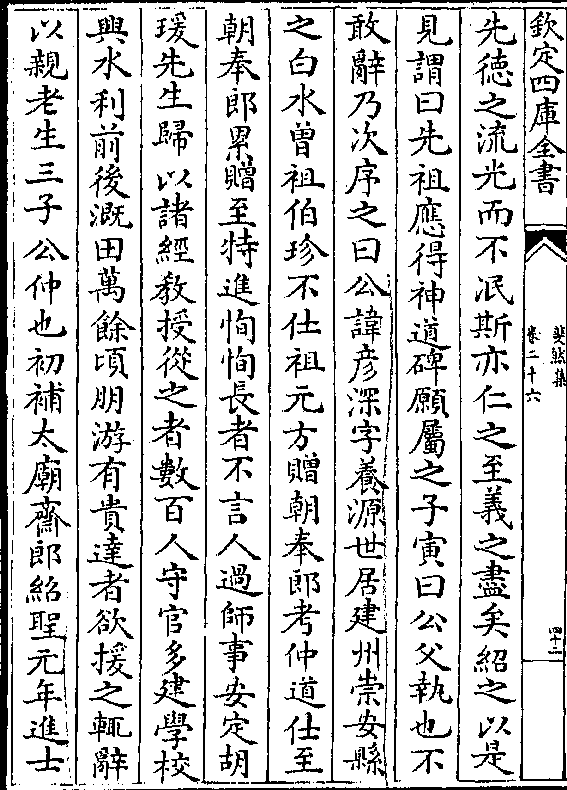 欽定四庫全書
斐然集
卷二十六
四十二
先徳之流光而不泯斯亦仁之至義之盡矣紹之以是
見謂曰先祖應得神道碑願屬之子寅曰公父執也不
敢辭乃次序之曰公諱彦深字養源世居建州崇安縣
之白水曾祖伯珍不仕祖元方贈朝奉郎考仲道仕至
朝奉郎累贈至特進恂恂長者不言人過師事安定胡
瑗先生歸以諸經教授從之者數百人守官多建學校
興水利前後溉田萬餘頃朋游有貴達者欲援之輒辭
以親老生三子公仲也初補太廟齋郎紹聖元年進士